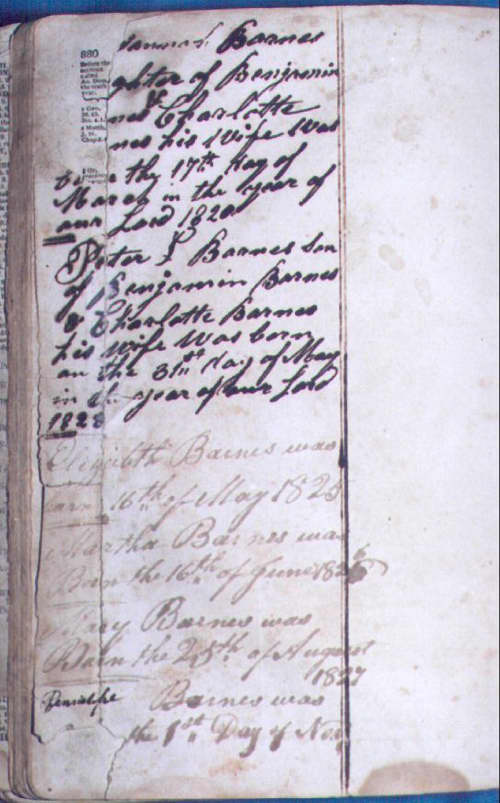 880
Barnes
ghter of Benjamin
nes & Charlotte
nes his Wife Was
the 17th day of
March in the year of
our Lord 1820
Peter Barnes Son
of Benjamin Barnes
& Charlotte Barnes
his Wife Was born
on the 31st day of May
in the year of our Lord
1823
Elizabeth Barnes was
born 16th of May 1825
Martha Barnes was
Born the 16th of June 1826
Mary Barnes was
Born the 25th of August
1827
Barnes was
the 1st Day of Nov